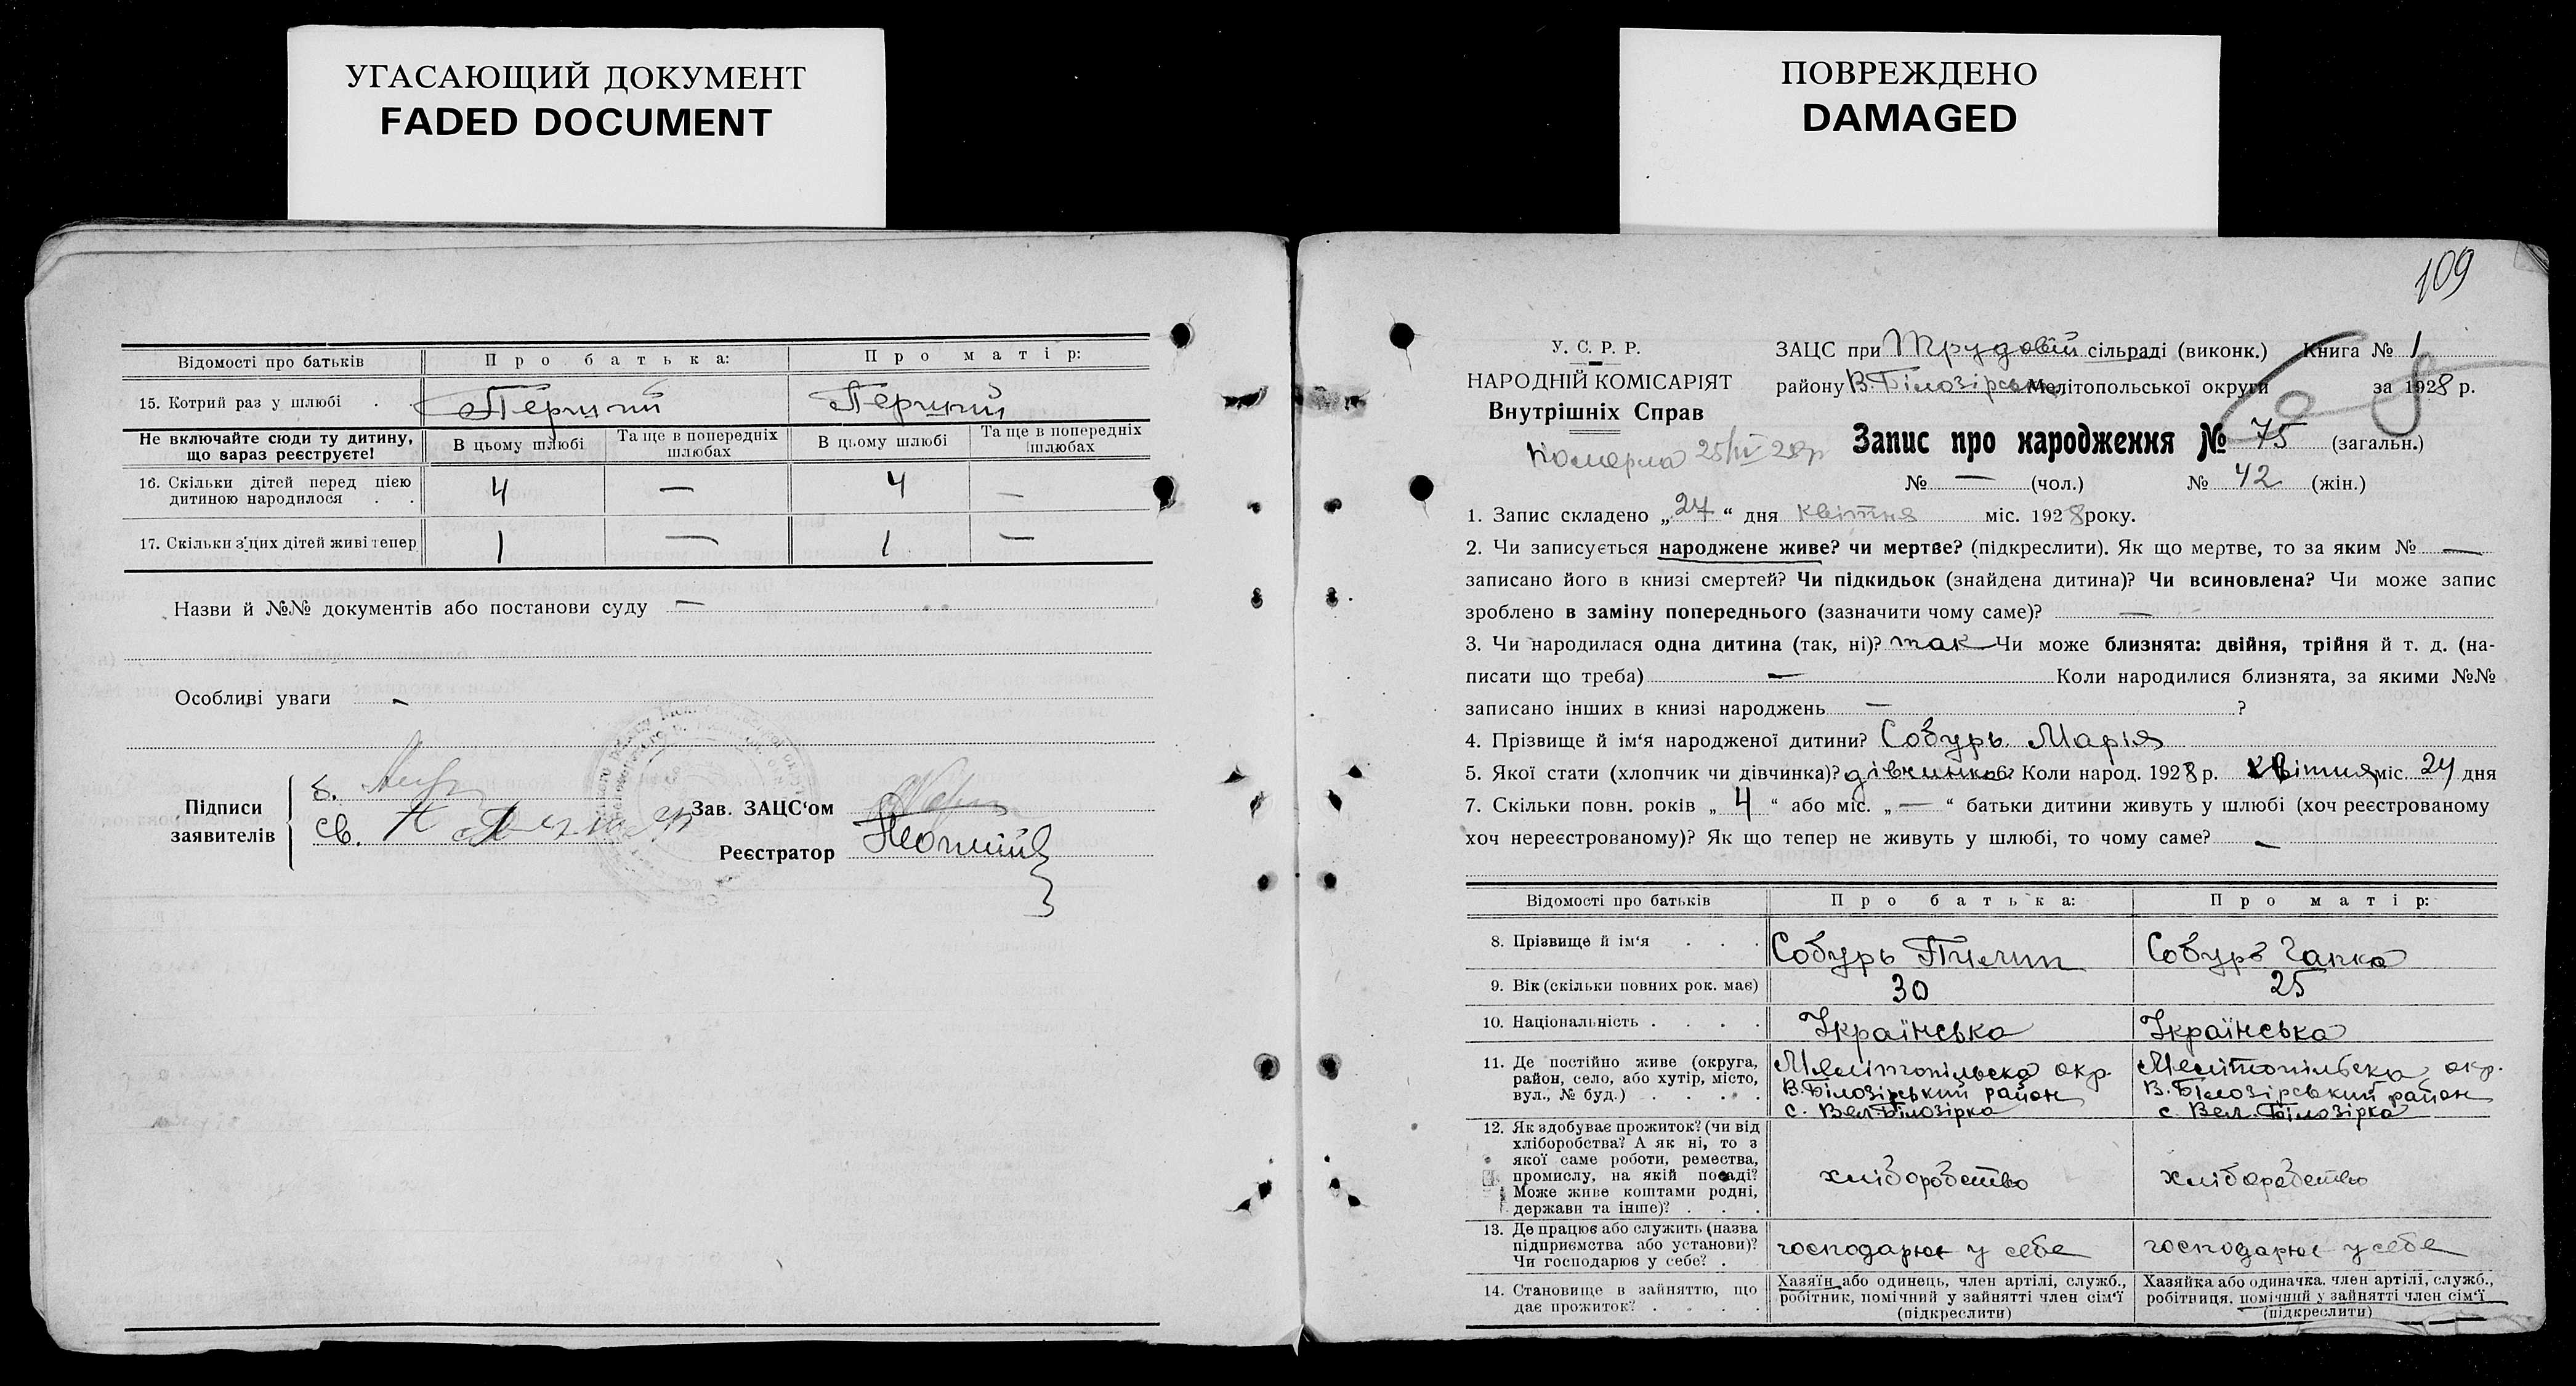 УГАСАЮЩИЙ ДОКУМЕНТ
FADED DOCUMENT
ПОВРЕЖДЕНО
DAMAGED
Відомості про батьків Про батька: Про матір:
15. Котрий раз у шлюбі . . Перший Перший
Не включайте сюди ту дитину, що вараз реєструєте! В цьому шлюбі Та ще в попередніх шлюбах В цьому шлюбі Та ще в попередніх шлюбах
16. Скільки дітей перед цією
дитиною народилося . . 4 — 4 —
17. Скільки з'цих дітей живі тепер 1 — 1 —
Назви й №№ документів або постанови суду —
Особливі уваги —
Підписи
заявителів
б.
св.
Зав. ЗАЦС'ом
Реєстратор
109
У. С. Р. Р.
НАРОДНІЙ КОМІСАРІЯТ
Внутрішніх Справ
Померла 25/IV 28р
ЗАЦС при Трудовій сільраді (виконк.) Книга № 1
району В. Білозірськ. Мелітопольської округи за 1928 р.
Запис про народження № 75 (загальн.)
№ — (чол.) № 42 (жін.)
1. Запис складено „27“ дня квітня міс. 1928 року.
2. Чи записується народжене живе? чи мертве? (підкреслити). Як що мертве, то за яким № —
записано його в книзі смертей? Чи підкидьок (знайдена дитина)? Чи всиновлена? Чи може запис
зроблено в заміну попереднього (зазначити чому саме)? —
3. Чи народилася одна дитина (так, ні)? так Чи може близнята: двійня, трійня й т. д. (на-
писати що треба) — Коли народилися близнята, за якими №№
записано інших в книзі народжень — ?
4. Прізвище й ім'я народженої дитини? Собурь Марія
5. Якої стати (хлопчик чи дівчинка)? дівчинка 6. Коли народ. 1928 р. квітня міс. 24 дня
7. Скільки повн. років „ 4 “ або міс. „ — “ батьки дитини живуть у шлюбі (хоч реєстрованому
хоч нереєстрованому)? Як що тепер не живуть у шлюбі, то чому саме? —
Відомості про батьків Про батька: Про матір:
8. Прізвище й ім'я . . . Собурь Пилип Собурь Гапка
9. Вік (скільки повних рок. має) 30 25
10. Національність . . . . Українська Українська
11. Де постійно живе (округа,
район, село, або хутір, місто,
вул., № буд.) . . . .
Мелітопільска окр.
В. Білозірський район
с. Вел. Білозірка
Мелітопільска окр.
В. Білозірський район
с Вел. Білозірка
12. Як здобуває прожиток? (чи від
хліборобства? А як ні, то з
якої саме роботи, ремества,
промислу, на якій посаді?
Може живе коштами родні,
держави та інше)? . . .
хліборобство хліборобство
13. Де працює або служить (назва
підприємства або установи)?
Чи господарює у себе? .
господарює у себе господарює у себе
14. Становище в зайняттю, що
дає прожиток? . . . .
Хазяїн або одинець, член артілі, служб.,
робітник, помічний у зайнятті член сім'ї
(підкреслити)
Хазяйка або одиначка, член артілі, служб.,
робітниця, помічний у зайнятті член сім'ї
(підкреслити)